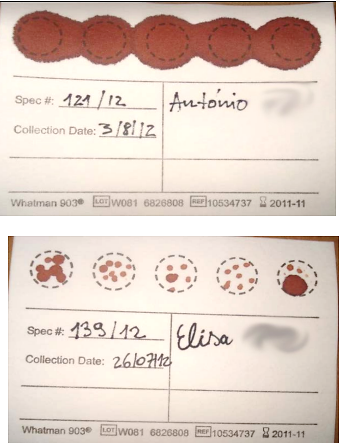 Spec #: 121/12 António
Collection Date: 3/8/12
Whatman 903® LOT W081 6826808 REF 10534737 2011-11
Spec #: 139/12 Elisa
Collection Date: 26/07/12
Whatman 903® LOT W081 6826808 REF 10534737 2011-11